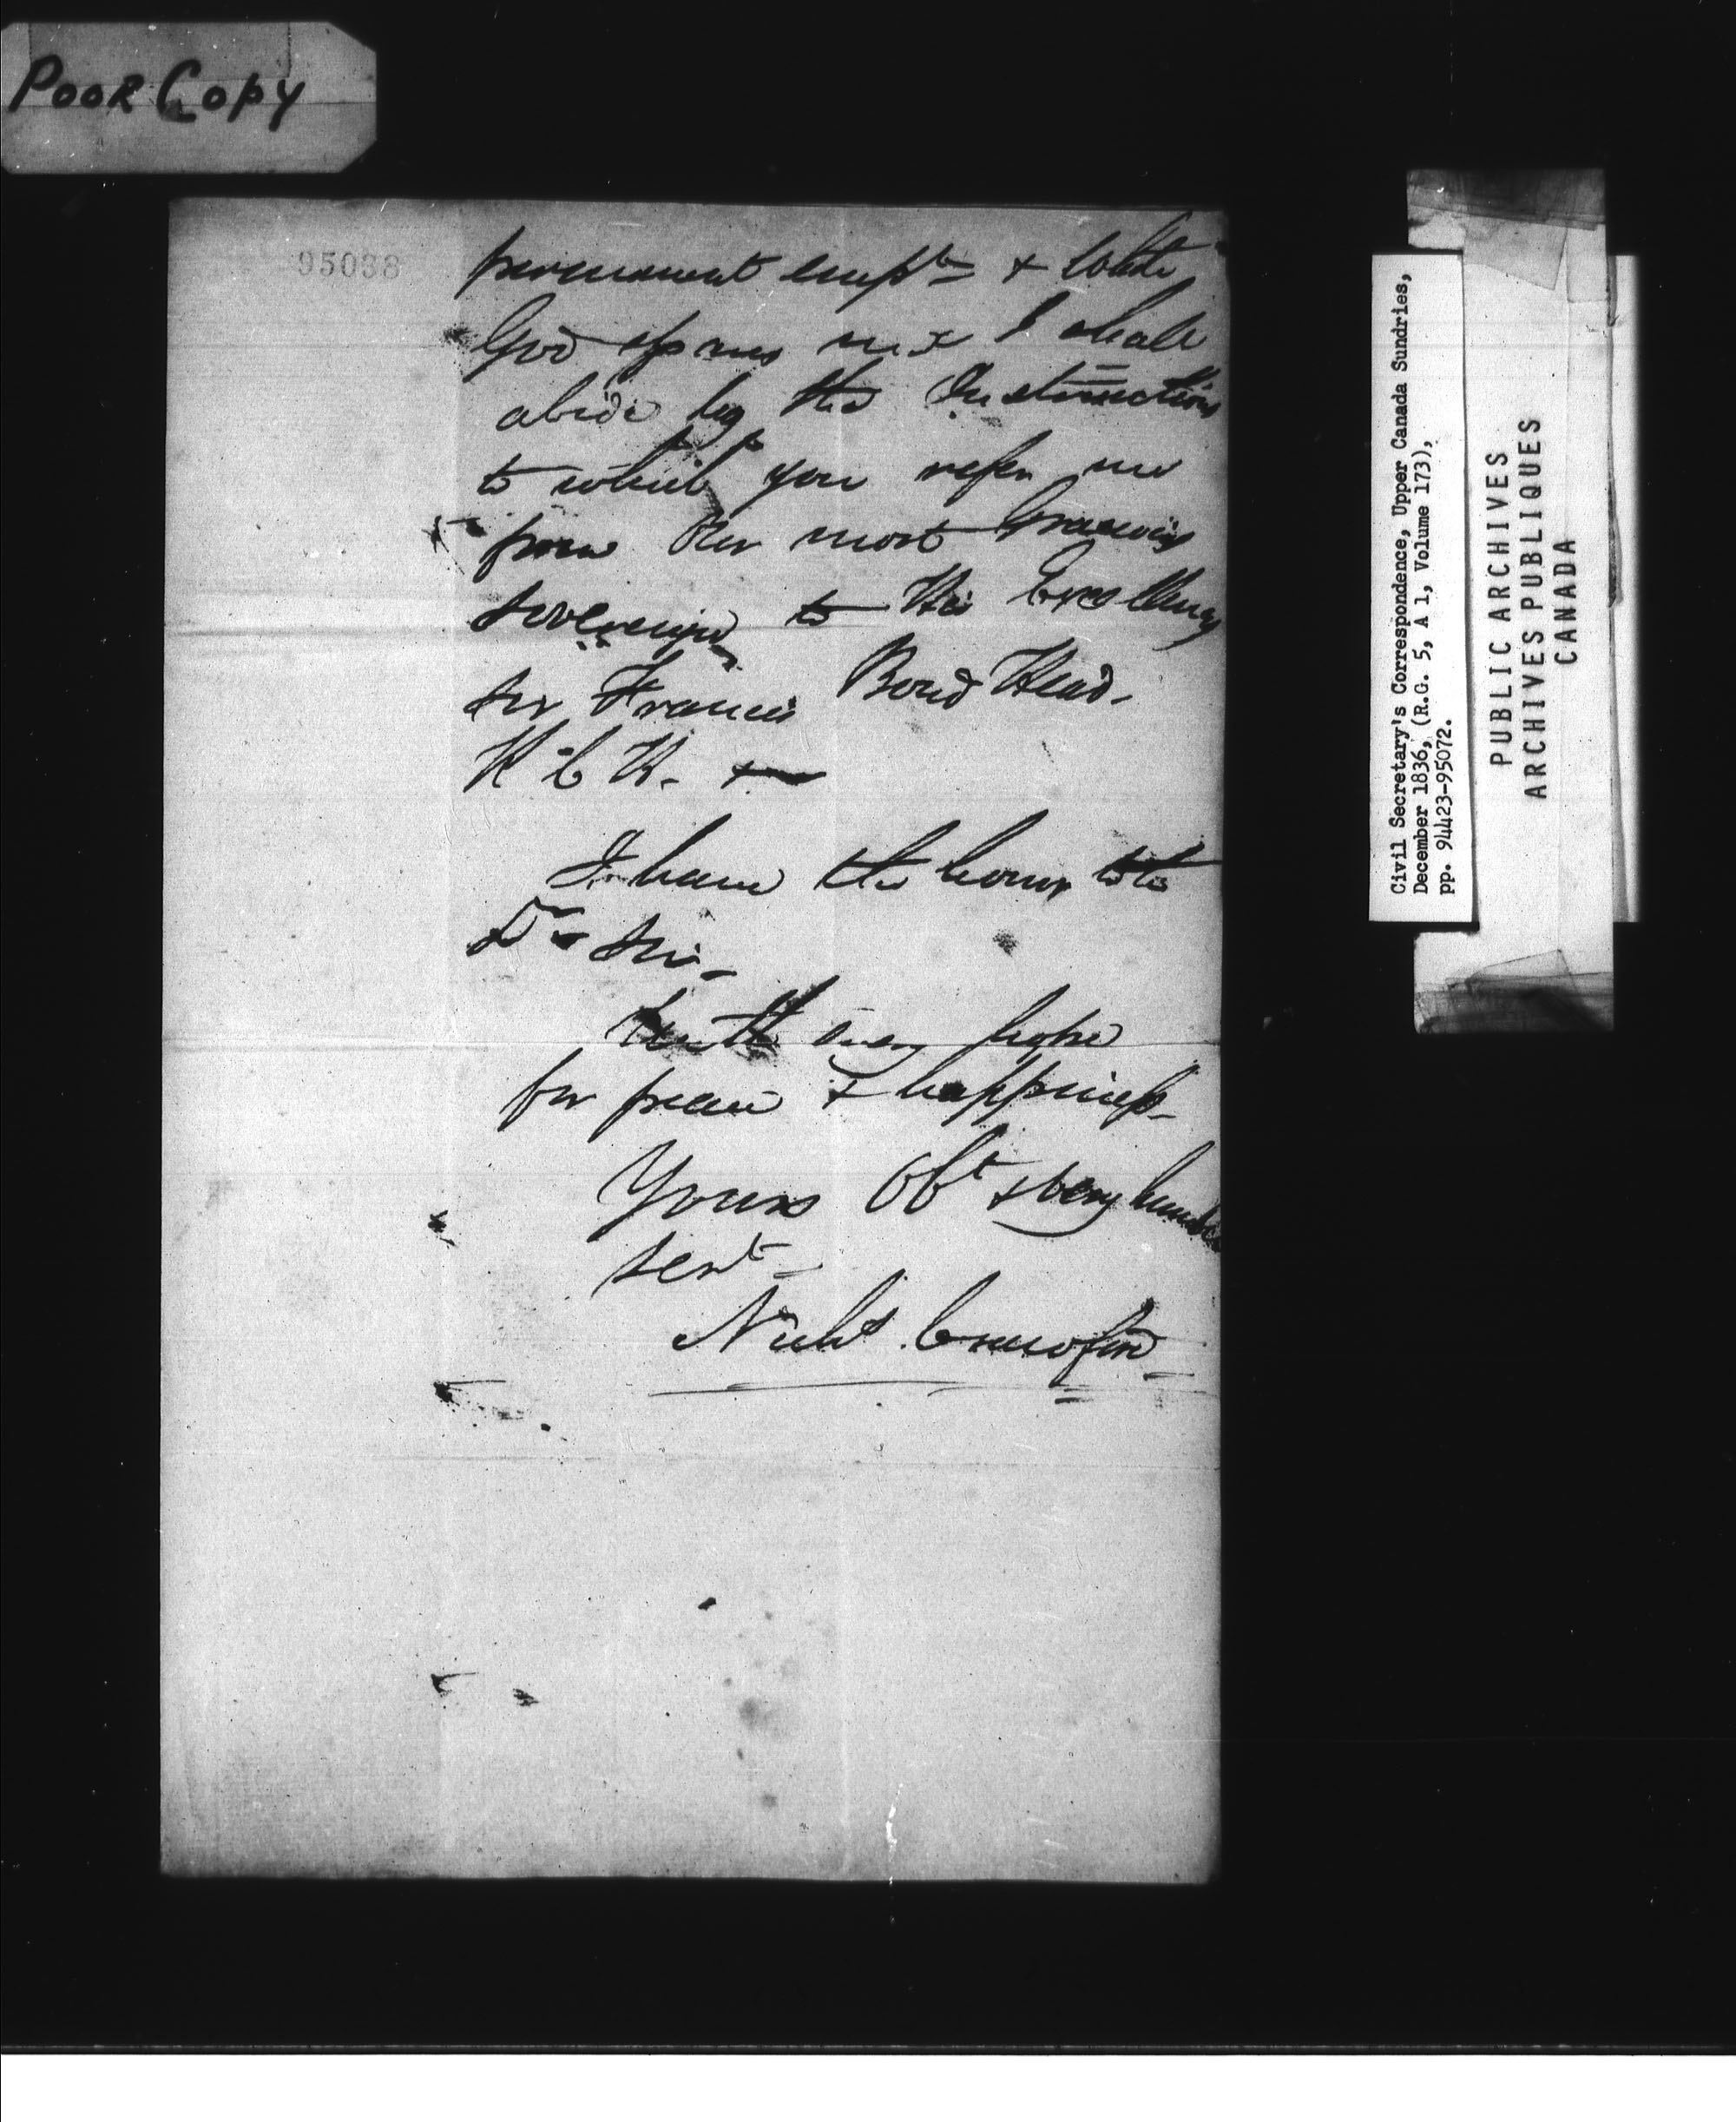 Poor Copy
95038
permanent empt & while
God spares me I shall
abide by the Instructions
to which you refer me
from Our most Gracious
Sovereign to His Excellency
Sir Francis Bond Head.
K C H. &
I have the honor to be
Dr Sir
with every hope
for peace & happiness
Yours Obt & very humble
Servt
Crawford
Civil Secretary's Correspondence, Upper Canada Sundries,
December 1836, (R.G. 5, A 1, Volume 173),
pp. 94423-95072.
PUBLIC ARCHIVES
ARCHIVES PUBLIQUES
CANADA